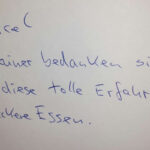 ainer bedanken si
diese tolle Erfahr
Essen.